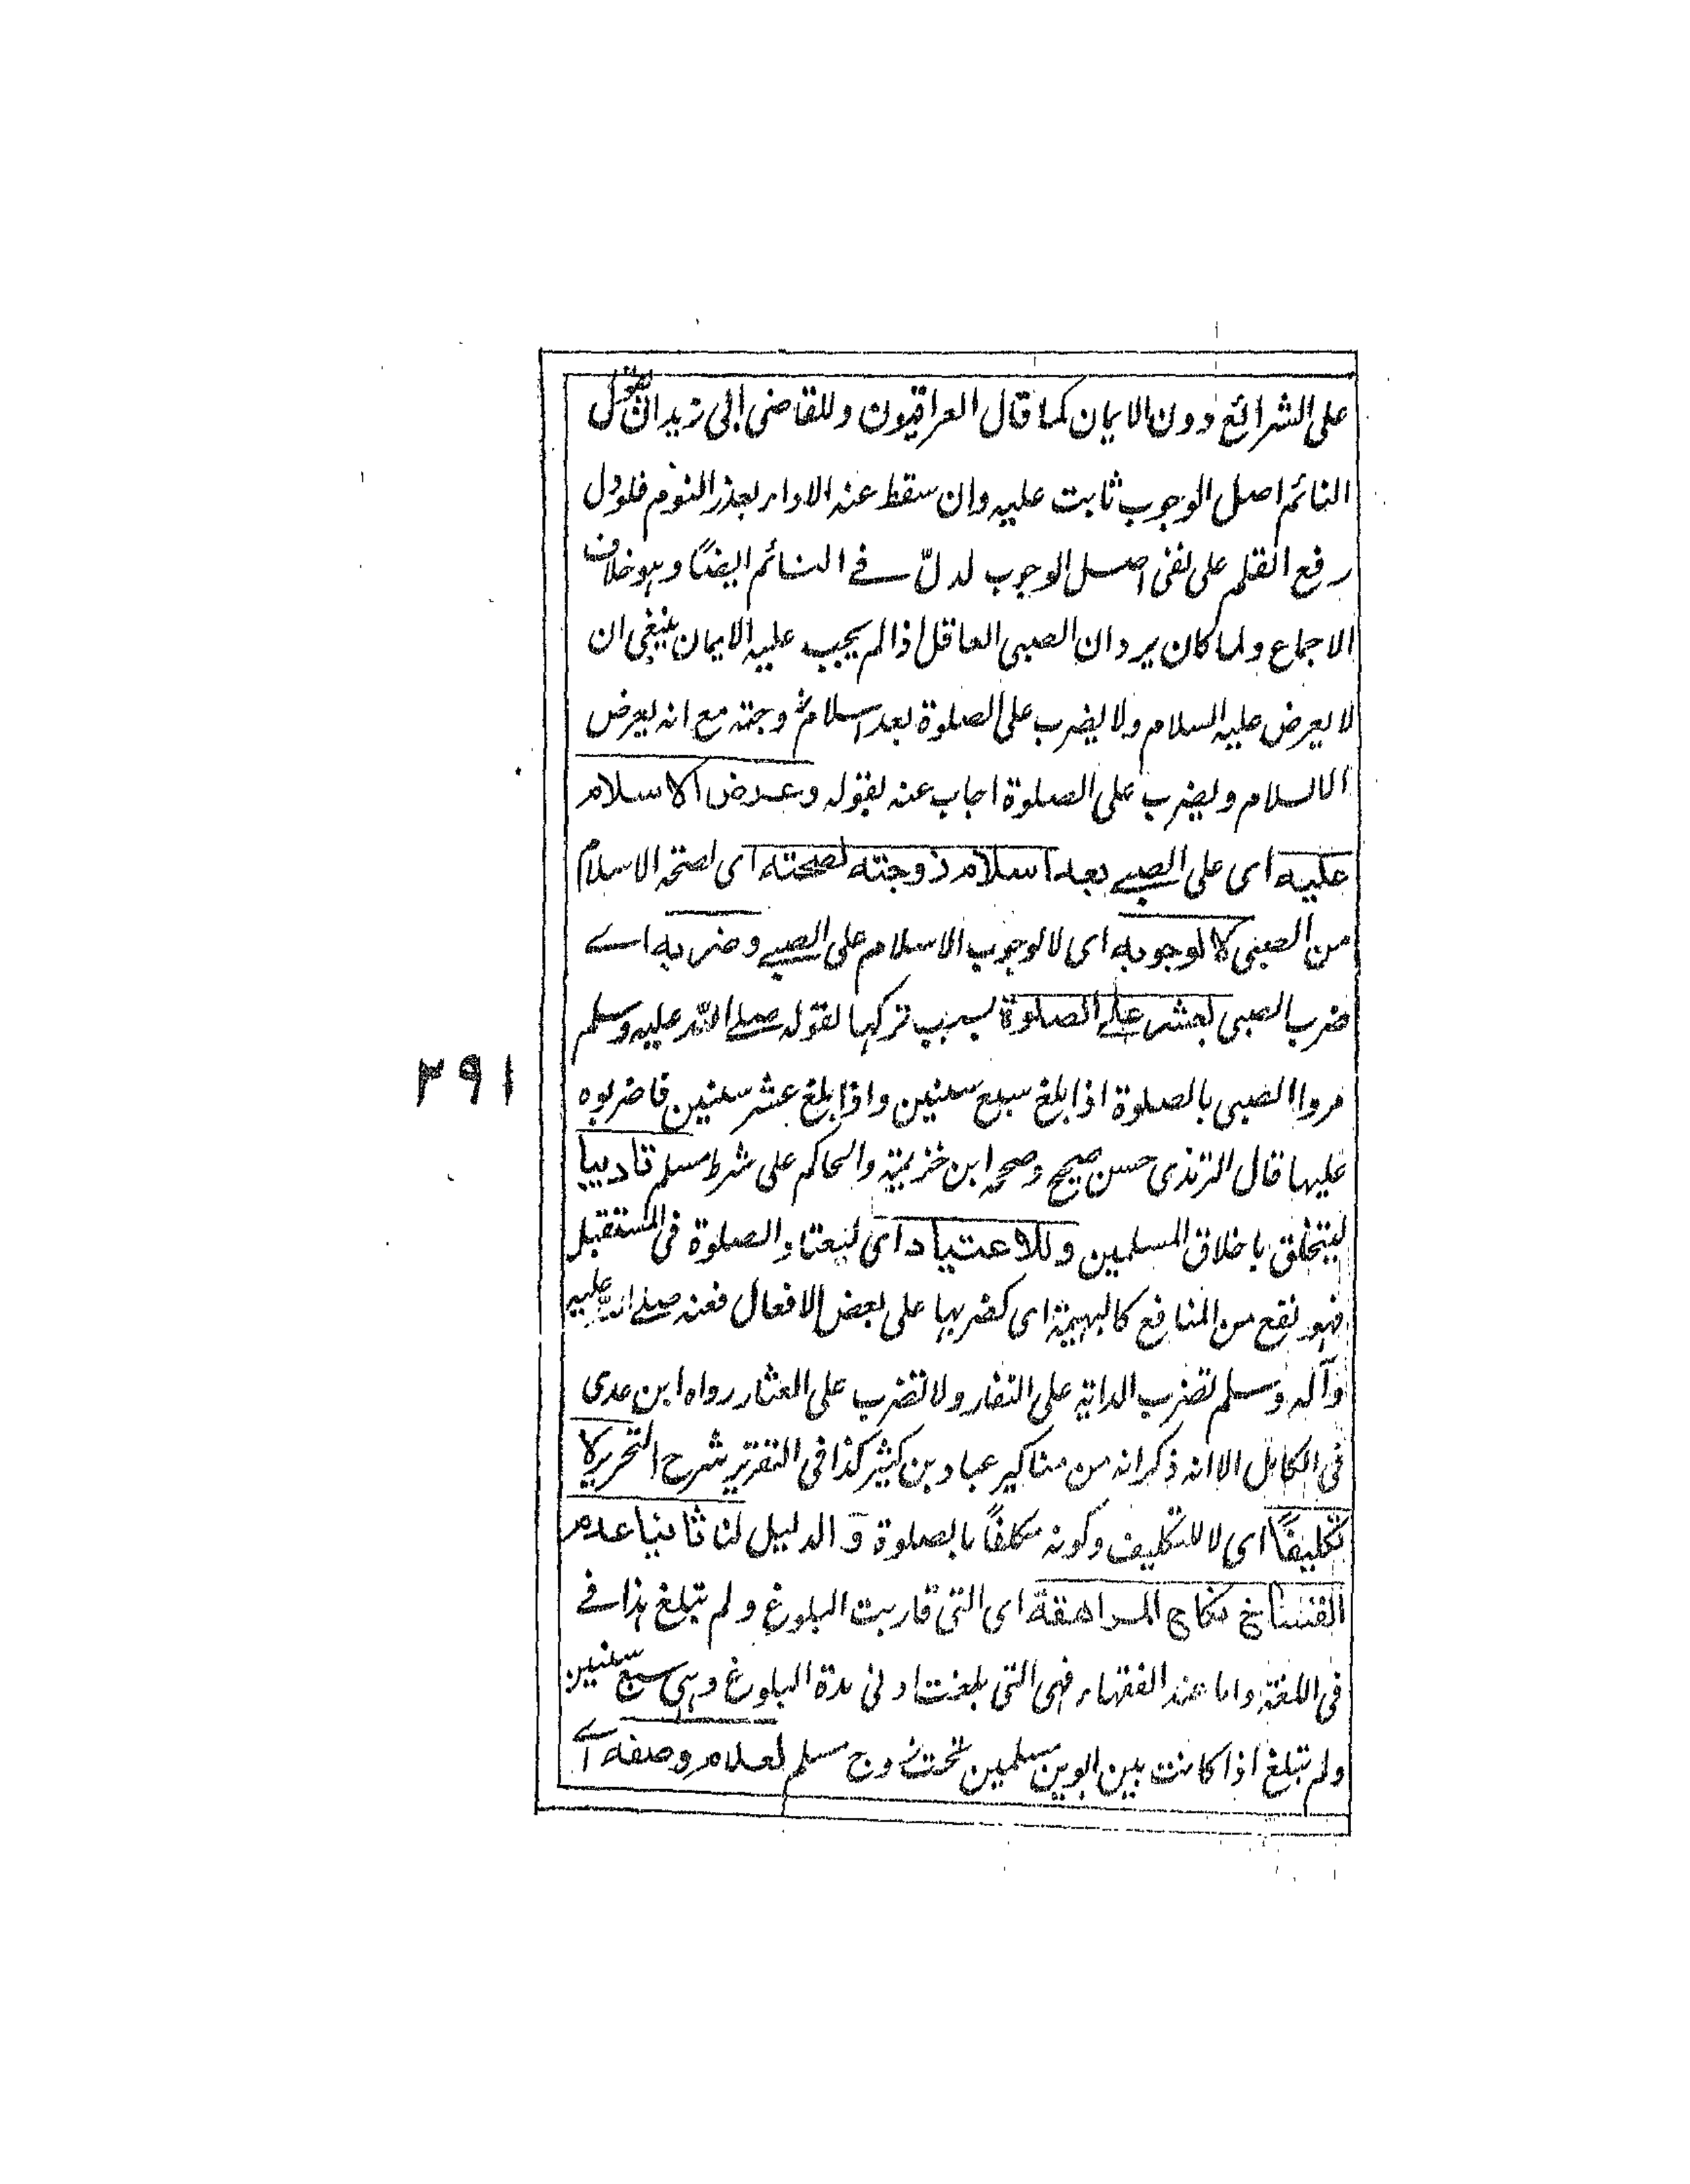 على الشرائع دون الايمان كما قال العراقيون وللقاضى ابى زيد ان يقول
النائم اصل الوجوب ثابت عليه وان سقط عنه الاداء بعذر النوم فلو دل
رفع القلم على نفى اصل الوجوب لدلّ فے النائم ايضًا وهو خلاف
الاجماع ولما كان يرد ان الصبى العاقل اذا لم يجب عليه الايمان ينبغى ان
لا يعرض عليه السلام ولا يضرب على الصلوة بعد اسلام زوجته مع انه يعرض
الاسلام ويضرب على الصلوة اجاب عنه بقوله وعرض الاسلام
عليه اى على الصبے بعد اسلام زوجته لصحته اى لصحة الاسلام
من الصبى لا لوجوبه اى لا لوجوب الاسلام على الصبے وضربه اے
ضرب الصبى لعشر علے الصلوة بسبب تركها لقوله صلے الله عليه وسلم
مروا الصبى بالصلوة اذا بلغ سبع سنين واذا بلغ عشر سنين فاضربوه
٢٩١
عليها قال الترمذى حسن صحيح وصححه ابن خزيمة والحاكم على شرط مسلم تاديبا
ليتخلق باخلاق المسلمين وللاعتياد اى ليعتاد الصلوة فى المستقبل
فهو نفع من المنافع كالبهيمة اى كضربها على بعض الافعال فعنه صلے الله عليه
وآله وسلم تضرب الدابة على النفار ولا تضرب على العثار رواه ابن عدى
فى الكامل الا انه ذكر انه من مناكير عباد بن كثير كذا فى التقرير شرح التحرير لا
تكليفًا اى لا للتكليف وكونه مكلفًا بالصلوة و الدليل لنا ثانيا عدم
انفساخ نكاح المراهقة اى التى قاربت البلوغ ولم تبلغ هذا فے
فى اللغة واما عند الفقهاء فهى التى بلغت ادنى مدة البلوغ وهى سبع سنين
ولم تبلغ اذا كانت بين ابوين مسلمين تحت زوج مسلم لعدم وصفه اے